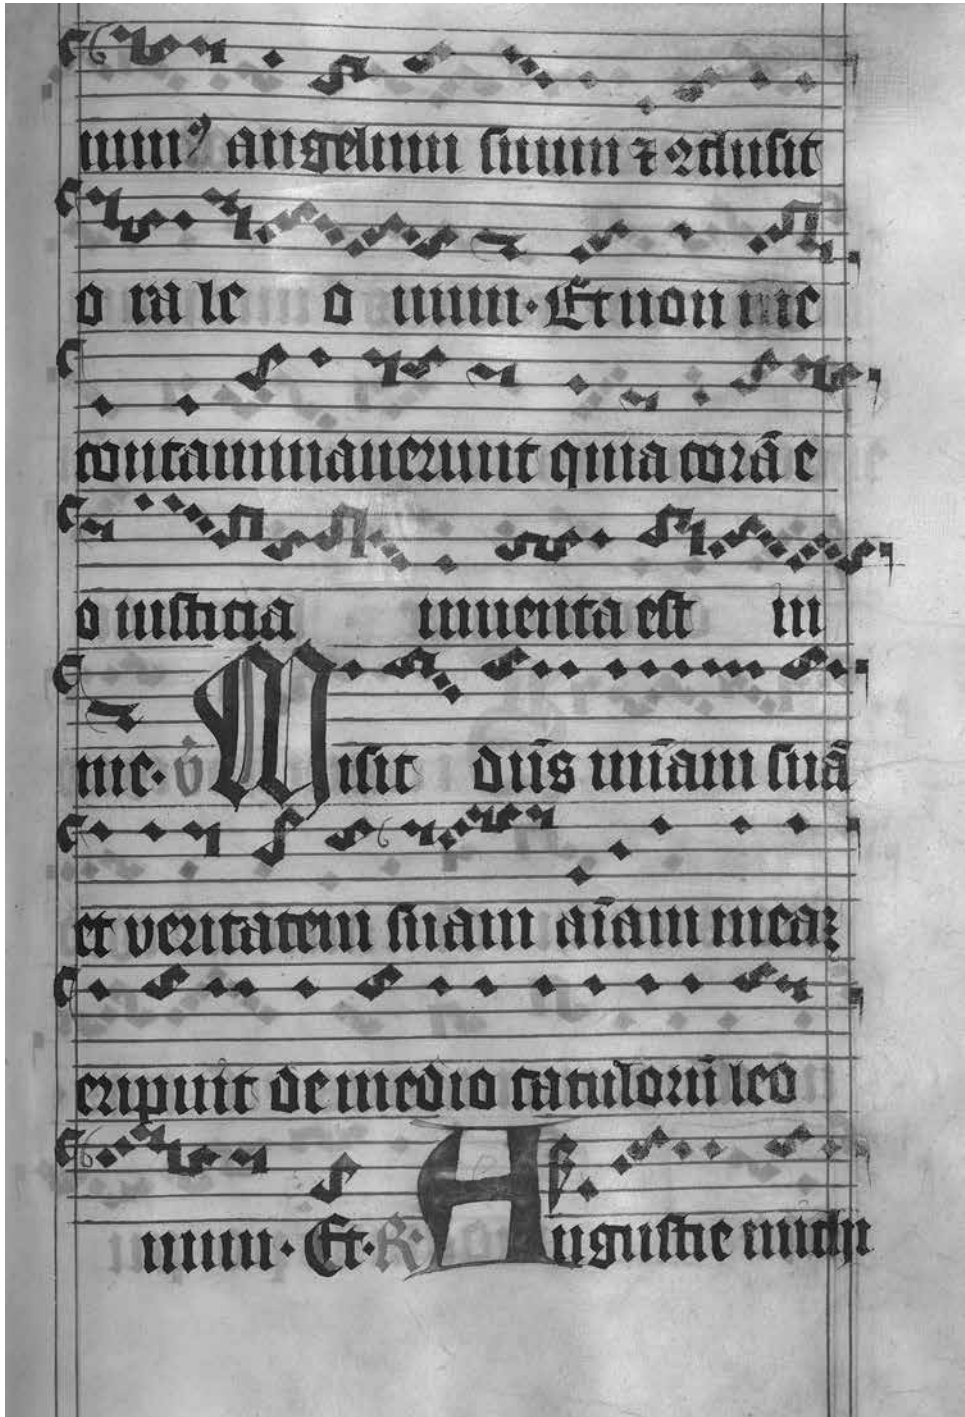 nim⁹ angelum suum ⁊ ꝯclusit
o ra le o num. Et non me
contaminauerunt quia corā e
o iusticia inuenta est in
me. v̊ Misit dn̄s mīam suā
et veritatem suam aīam meaꝫ
eripuit de medio catuloru̅ leo
num. Et. R. Angustie michi